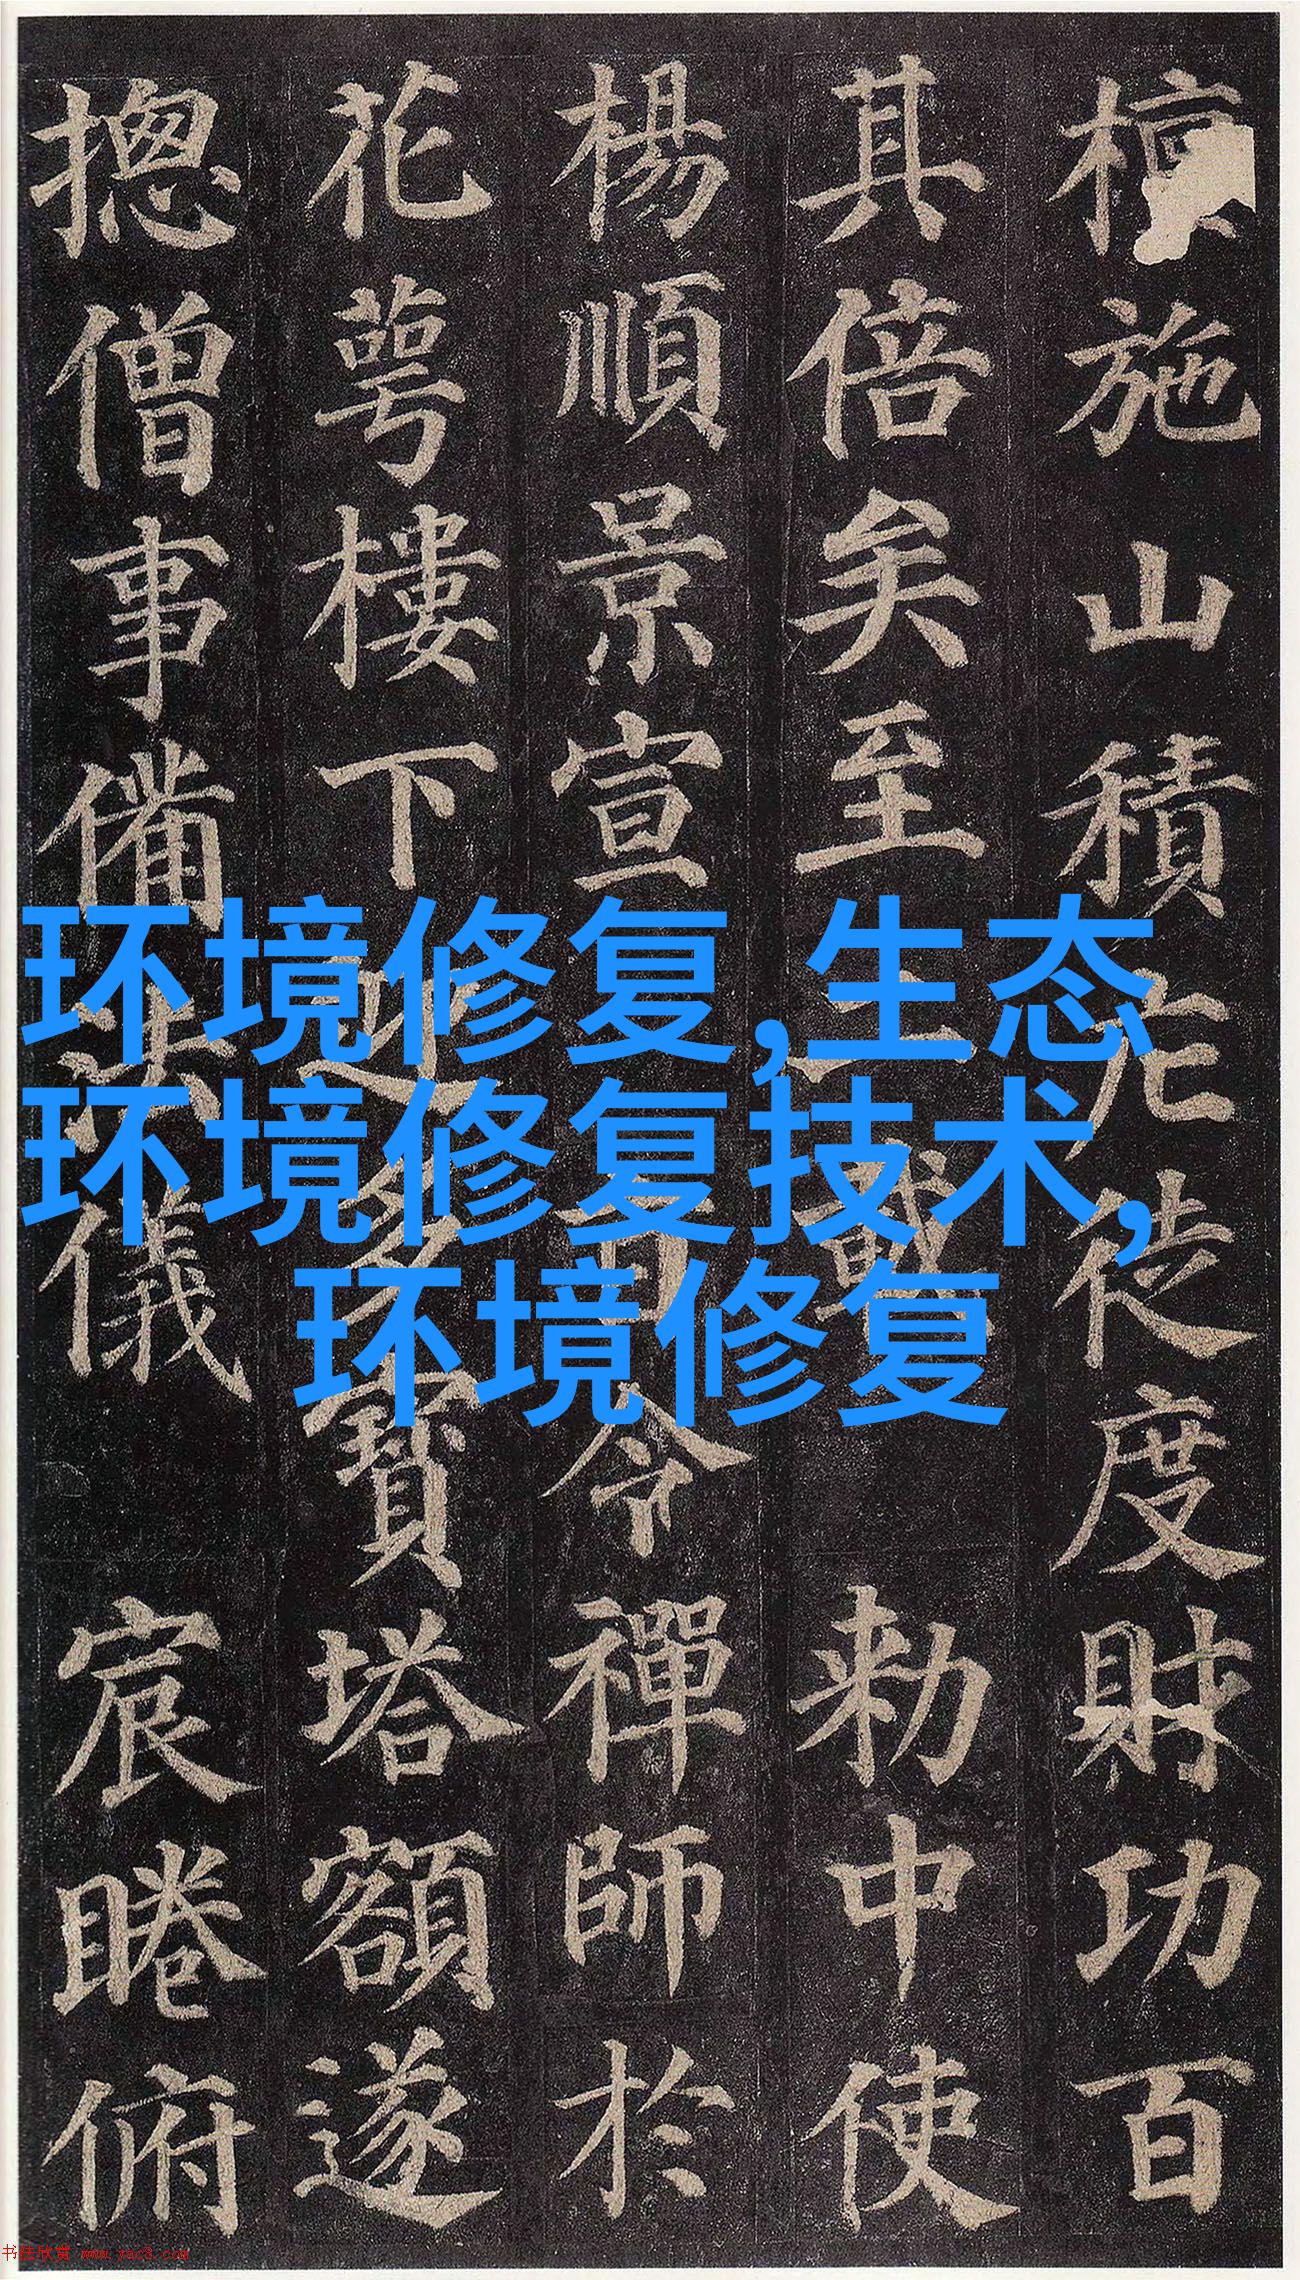 檀施山積庀徒度財功百
其倍矣至二載 勑中使
楊順景宣旨令禪師於
花萼樓下迎多寶塔額遂
揔僧事備法儀 宸睠俯
环境修复,生态
环境修复技术,
环境修复
书法欣赏 www.yac8.com